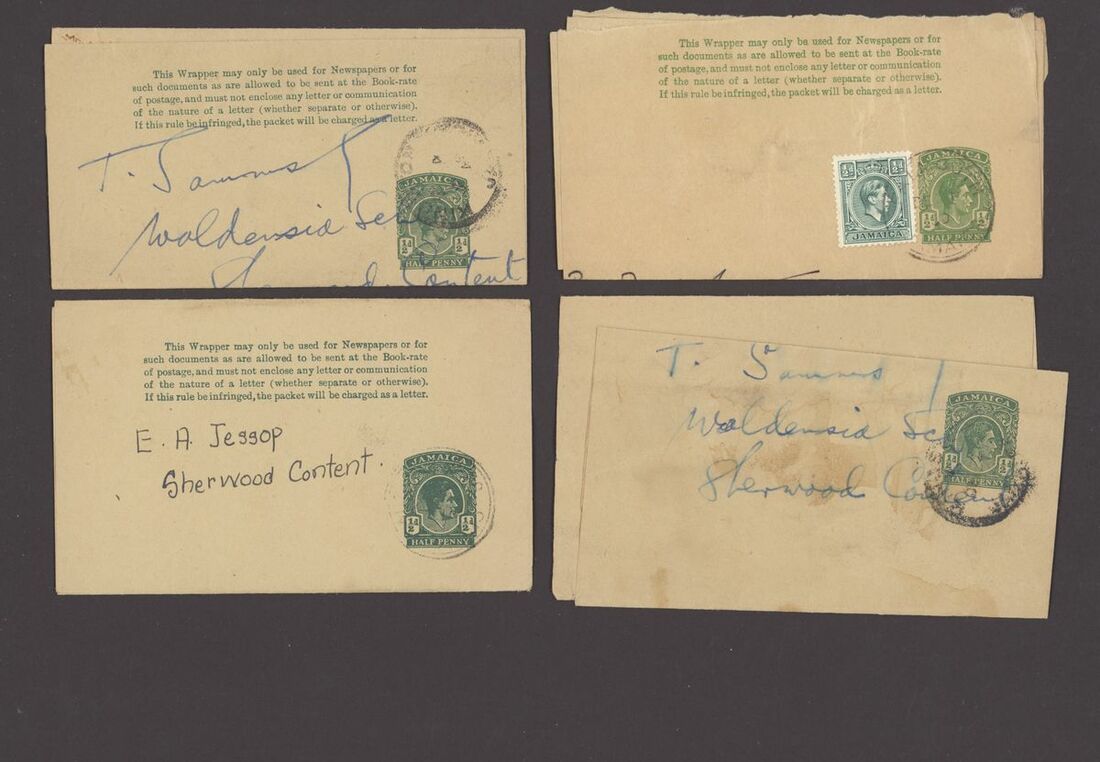 This Wrapper may only be used for Newspapers or for
such documents as are allowed to be sent at the Book-rate
of postage, and must not enclose any letter or communication
of the nature of a letter (whether separate or otherwise).
If this rule be infringed, the packet will be charged as a letter.
T. Samms
Waldensia
Sherwood Content
JAMAICA
½d ½d
HALF PENNY
This Wrapper may only be used for Newspapers or for
such documents as are allowed to be sent at the Book-rate
of postage, and must not enclose any letter or communication
of the nature of a letter (whether separate or otherwise).
If this rule be infringed, the packet will be charged as a letter.
½d ½d
JAMAICA
JAMAICA
½d ½d
HALF PENNY
This Wrapper may only be used for Newspapers or for
such documents as are allowed to be sent at the Book-rate
of postage, and must not enclose any letter or communication
of the nature of a letter (whether separate or otherwise).
If this rule be infringed, the packet will be charged as a letter.
E. A. Jessop
Sherwood Content.
JAMAICA
½d ½d
HALF PENNY
T. Samms
Waldensia
Sherwood Content
JAMAICA
½d ½d
HALF PENNY